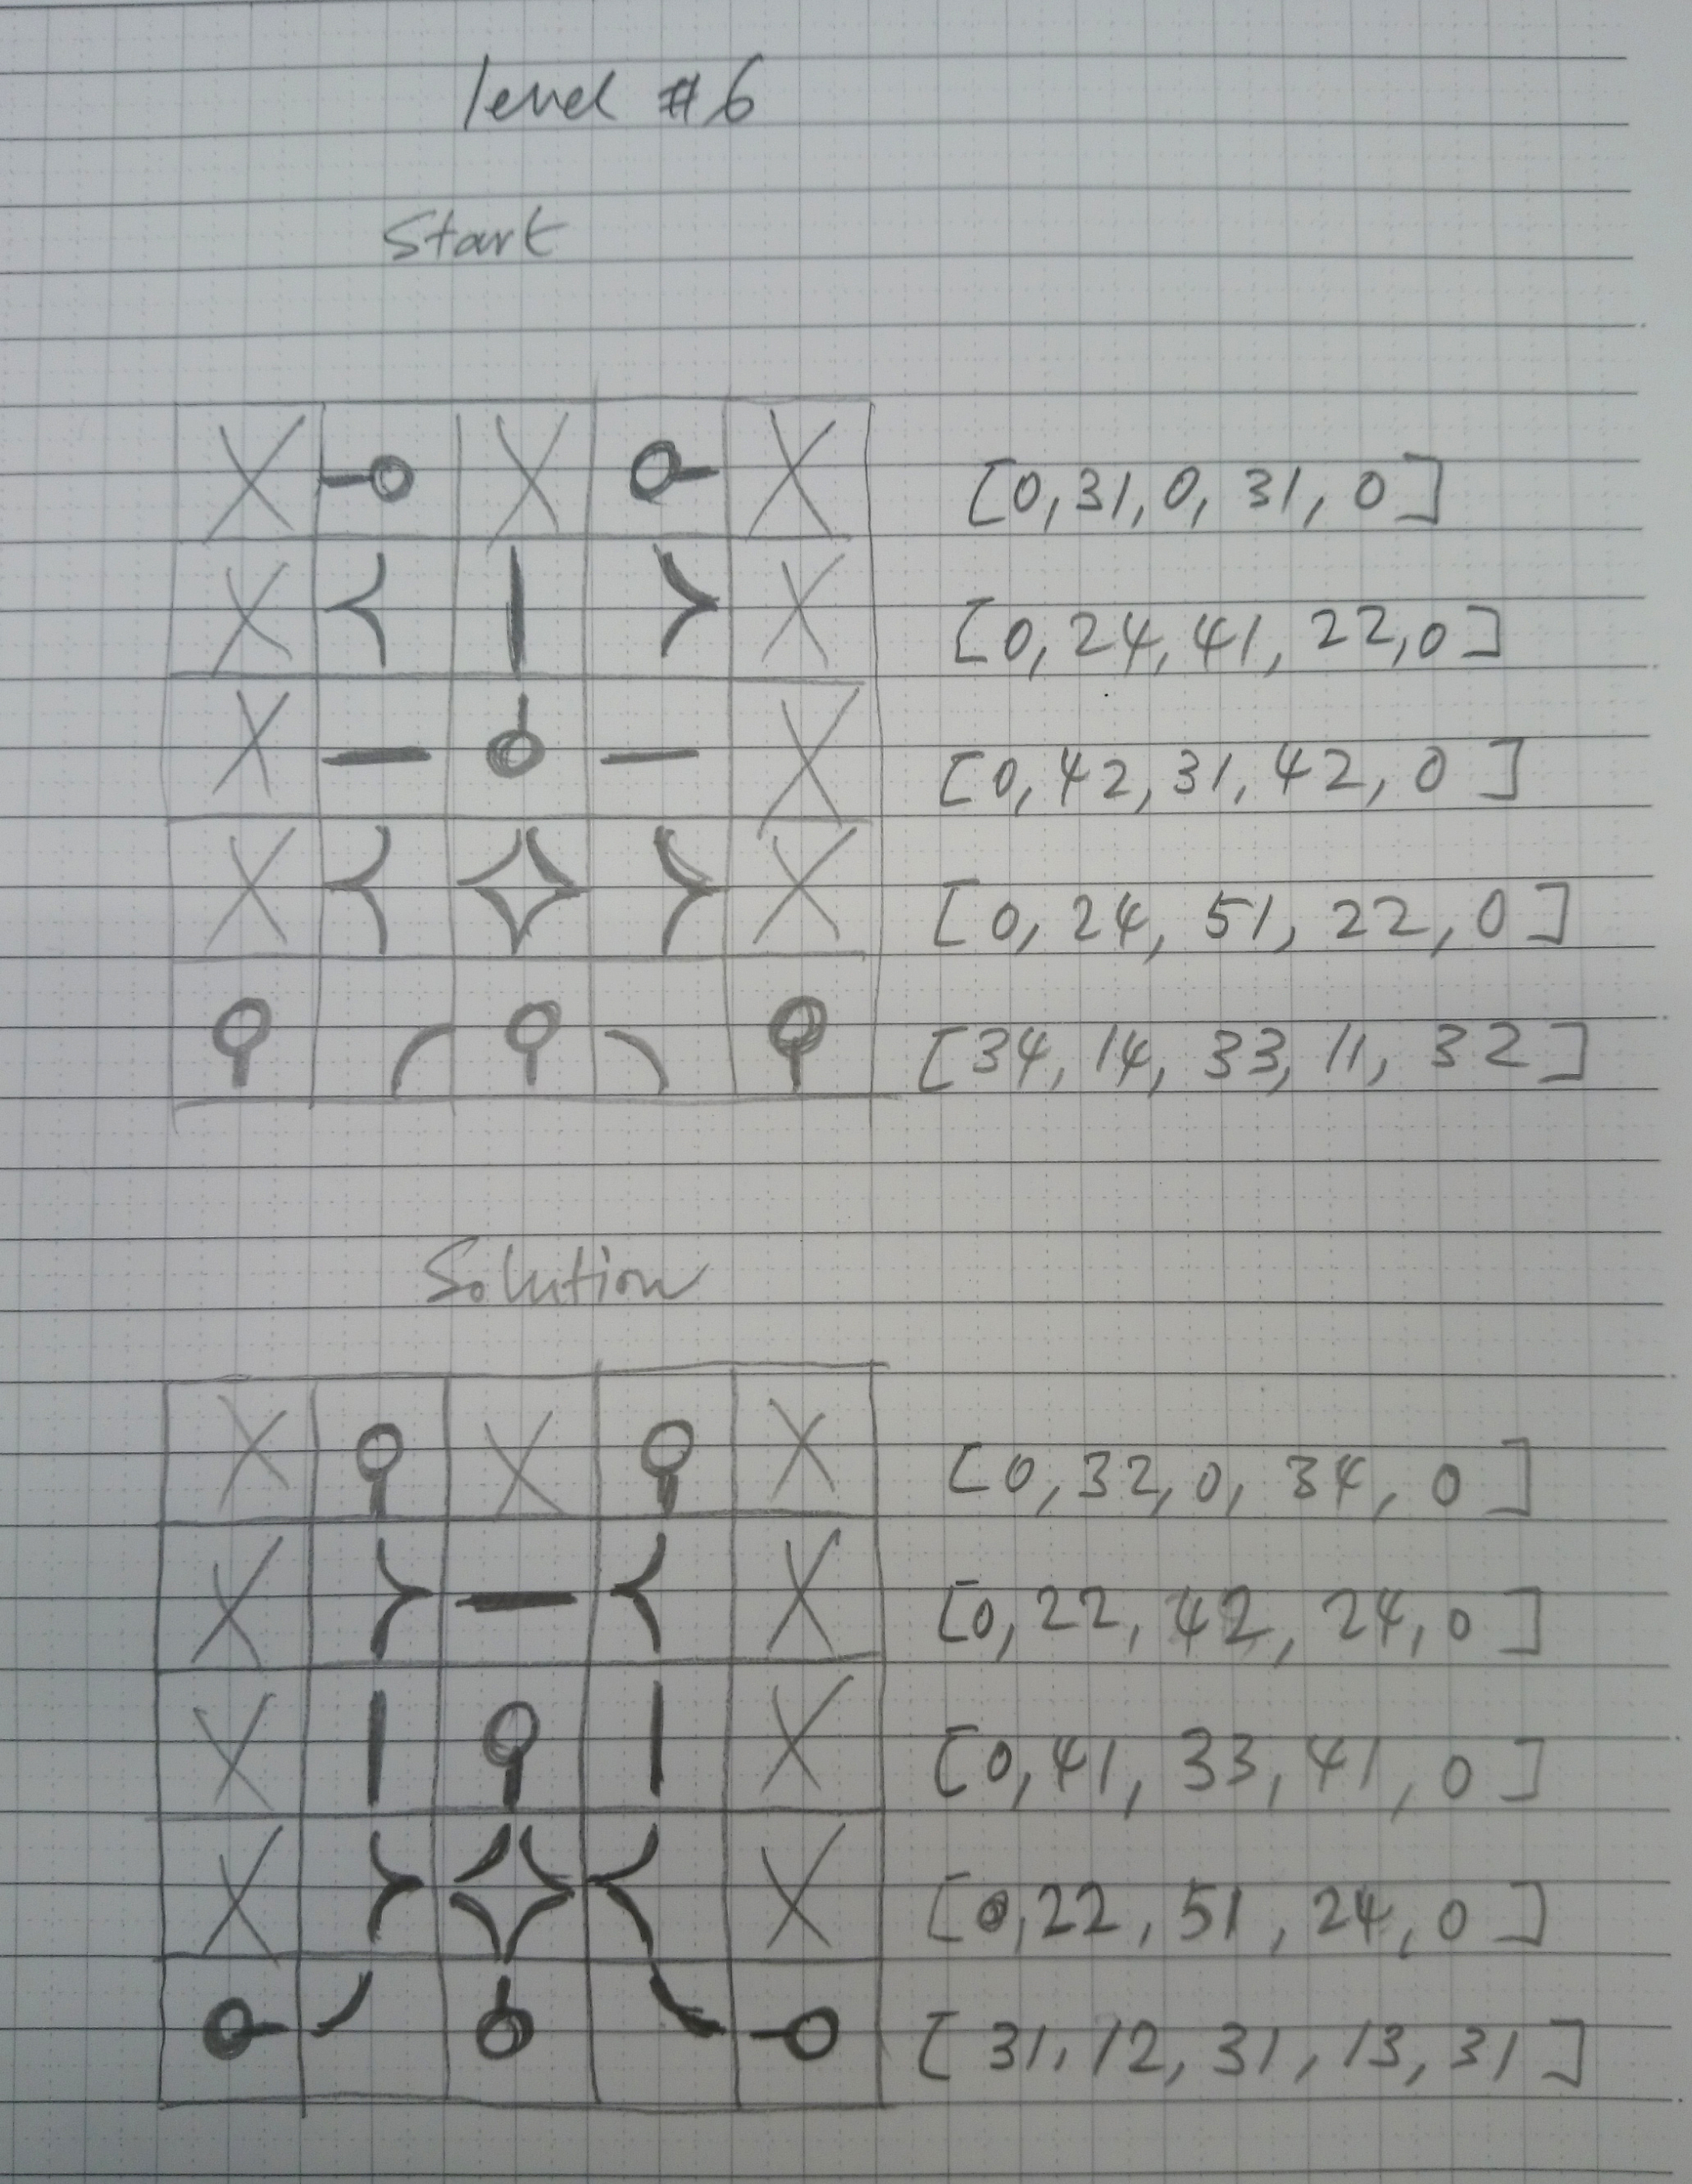 level #6
Start
[0, 31, 0, 31, 0]
[0, 24, 41, 22, 0]
[0, 42, 31, 42, 0]
[0, 24, 51, 22, 0]
[34, 14, 33, 11, 32]
Solution
[0, 32, 0, 34, 0]
[0, 22, 42, 24, 0]
[0, 41, 33, 41, 0]
[0, 22, 51, 24, 0]
[31, 12, 31, 13, 31]